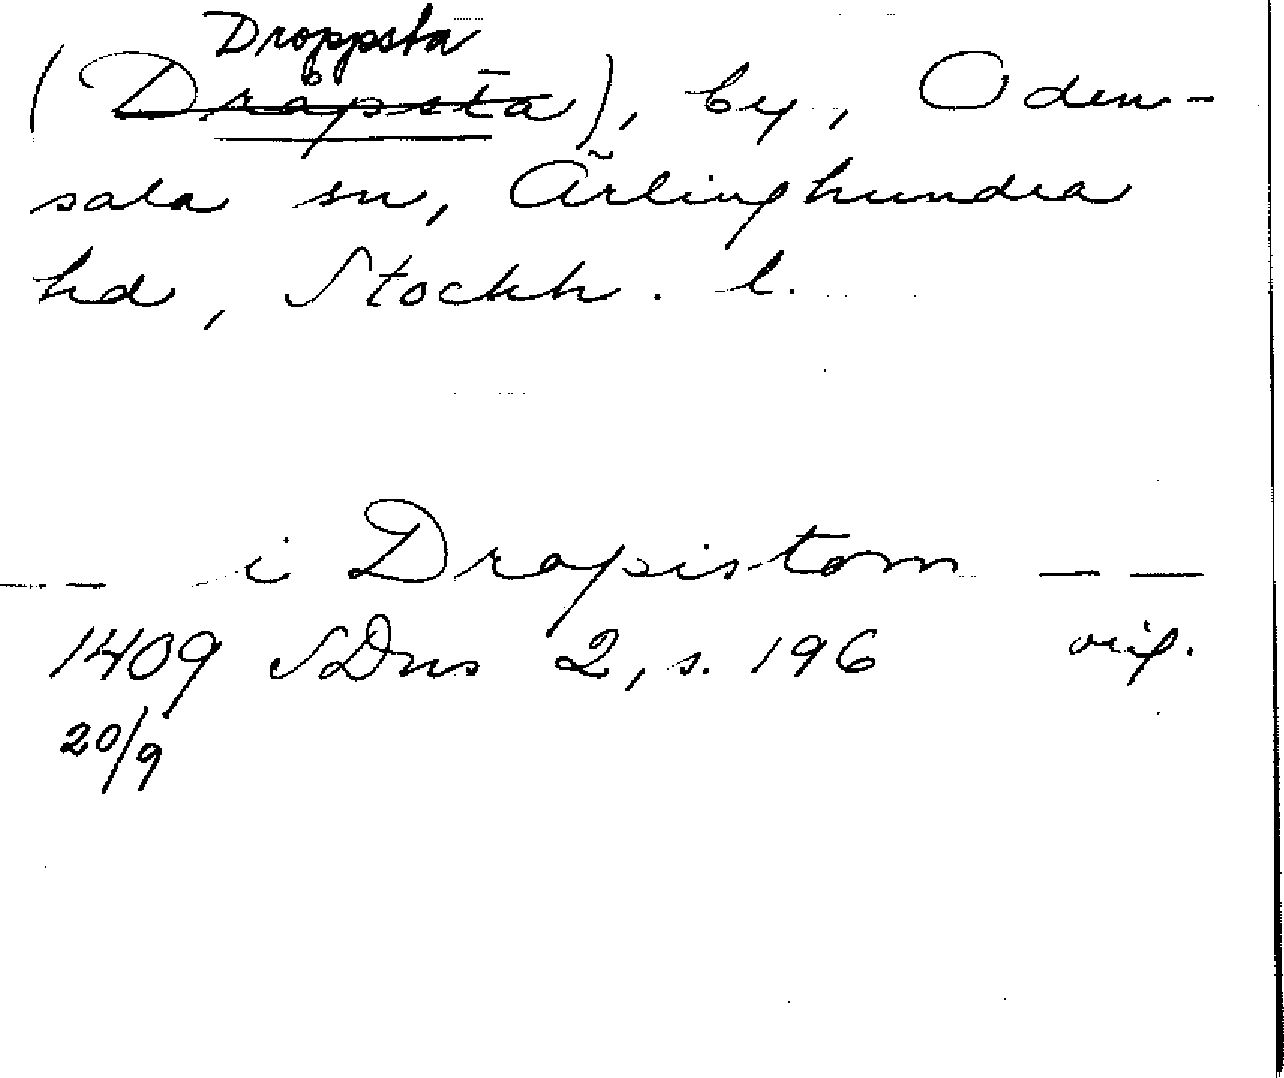 Droppsta
(Dråpsta), by, Oden-
sala sn, Ärlinghundra
hd, Stockh. l.
-- i Drapistom --
1409 SDns 2, s. 196 orig.
20/9